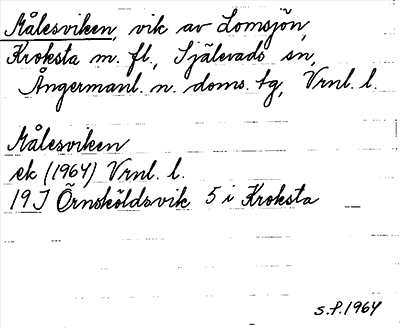 Målesviken, vik av Lomsjön,
Kroksta m. fl., Själevads sn,
Ångermanl. n. doms. tg, Vrnl. l.
Målesviken
ek (1964) Vrnl. l.
19J Örnsköldsvik 5 i Kroksta
S.P. 1964